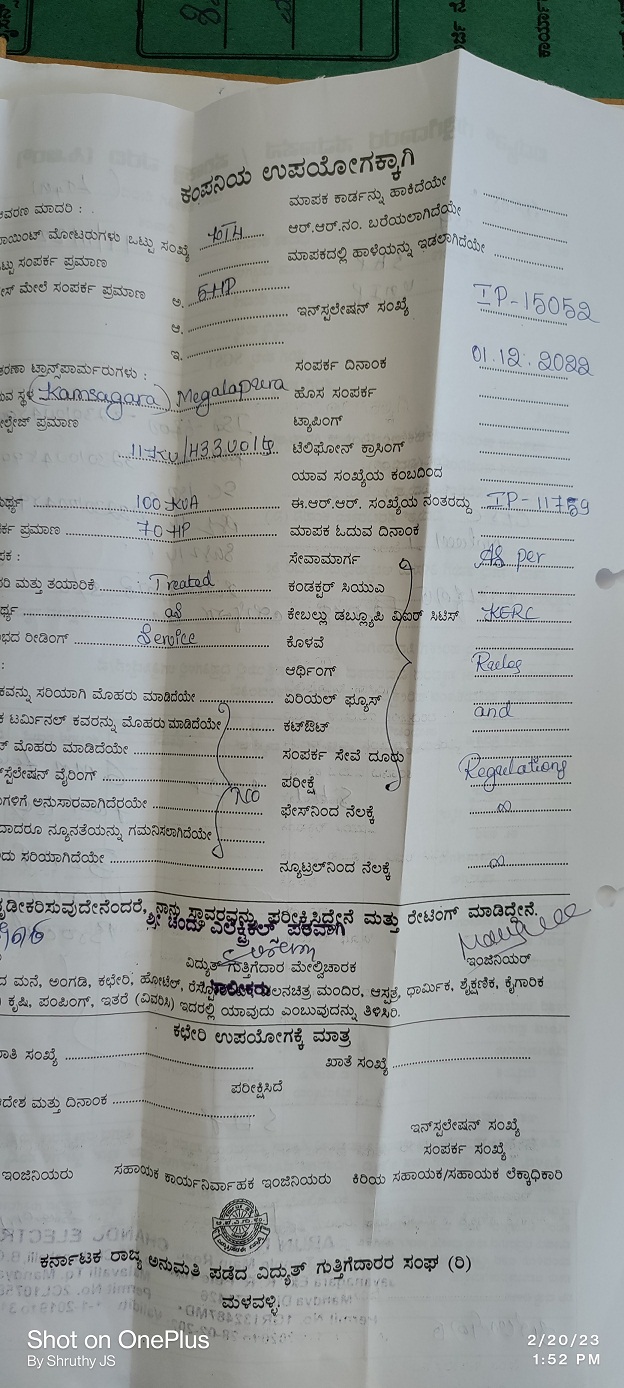 ಕಂಪನಿಯ ಉಪಯೋಗಕ್ಕಾಗಿ
ಆವರಣ ಮಾದರಿ :
ಮಾಪಕ ಕಾರ್ಡನ್ನು ಹಾಕಿದೆಯೇ
ಪಾಯಿಂಟ್ ಮೋಟರುಗಳು ಒಟ್ಟು ಸಂಖ್ಯೆ
ಆರ್.ಆರ್.ನಂ. ಬರೆಯಲಾಗಿದೆಯೇ
ಸಂಪರ್ಕ ಪ್ರಮಾಣ
ಮಾಪಕದಲ್ಲಿ ಹಾಳೆಯನ್ನು ಇಡಲಾಗಿದೆಯೇ
ಮೇಲೆ ಸಂಪರ್ಕ ಪ್ರಮಾಣ ಅ. 5 HP
ಆ. ಇನ್‌ಸ್ಟಲೇಷನ್ ಸಂಖ್ಯೆ IP-15052
ಇ.
ಟ್ರಾನ್ಸ್‌ಪಾರ್ಮರುಗಳು : ಸಂಪರ್ಕ ದಿನಾಂಕ 01.12.2022
ಸ್ಥಳ (Kamsagara) Megalapura ಹೊಸ ಸಂಪರ್ಕ
ಪ್ರಮಾಣ ಟ್ಯಾಪಿಂಗ್
11KV/433Volts ಟೆಲಿಫೋನ್ ಕ್ರಾಸಿಂಗ್
ಯಾವ ಸಂಖ್ಯೆಯ ಕಂಬದಿಂದ
100 KVA ಈ.ಆರ್.ಆರ್. ಸಂಖ್ಯೆಯ ನಂತರದ್ದು IP-11759
ಪ್ರಮಾಣ 70 HP ಮಾಪಕ ಓದುವ ದಿನಾಂಕ
ಸೇವಾಮಾರ್ಗ As per
ಮತ್ತು ತಯಾರಿಕೆ Treated ಕಂಡಕ್ಟರ್ ಸಿಯುಎ
as ಕೇಬಲ್ಲು ಡಬ್ಲ್ಯೂಪಿ ವಿಐಆರ್ ಸಿಟಿಸ್ KERC
ರೀಡಿಂಗ್ Service ಕೊಳವೆ
ಆರ್ಥಿಂಗ್ Rules
ಸರಿಯಾಗಿ ಮೊಹರು ಮಾಡಿದೆಯೇ ಏರಿಯಲ್ ಫ್ಯೂಸ್
ಟರ್ಮಿನಲ್ ಕವರನ್ನು ಮೊಹರು ಮಾಡಿದೆಯೇ ಕಟ್‌ಔಟ್ and
ಮೊಹರು ಮಾಡಿದೆಯೇ ಸಂಪರ್ಕ ಸೇವೆ ದೂರು
ವೈರಿಂಗ್ ಪರೀಕ್ಷೆ Regulations
ಅನುಸಾರವಾಗಿದೆರಯೇ NO ಫೇಸ್‌ನಿಂದ ನೆಲಕ್ಕೆ ∞
ನ್ಯೂನತೆಯನ್ನು ಗಮನಿಸಲಾಗಿದೆಯೇ
ಸರಿಯಾಗಿದೆಯೇ ನ್ಯೂಟ್ರಲ್‌ನಿಂದ ನೆಲಕ್ಕೆ ∞
ದೃಡೀಕರಿಸುವುದೇನೆಂದರೆ, ನಾನು ಸ್ಥಾವರವನ್ನು ಪರೀಕ್ಷಿಸಿದ್ದೇನೆ ಮತ್ತು ರೇಟಿಂಗ್ ಮಾಡಿದ್ದೇನೆ.
ಶ್ರೀ ಚಂದು ಎಲೆಕ್ಟ್ರಿಕಲ್ಸ್ ಪರವಾಗಿ
ವಿದ್ಯುತ್ ಗುತ್ತಿಗೆದಾರ ಮೇಲ್ವಿಚಾರಕ ಇಂಜಿನಿಯರ್
ಮಾಲೀಕರು
ಮನೆ, ಅಂಗಡಿ, ಕಛೇರಿ, ಹೋಟೆಲ್, ಚಲನಚಿತ್ರ ಮಂದಿರ, ಆಸ್ಪತ್ರೆ, ಧಾರ್ಮಿಕ, ಶೈಕ್ಷಣಿಕ, ಕೈಗಾರಿಕ
ಕೃಷಿ, ಪಂಪಿಂಗ್, ಇತರೆ (ವಿವರಿಸಿ) ಇದರಲ್ಲಿ ಯಾವುದು ಎಂಬುವುದನ್ನು ತಿಳಿಸಿರಿ.
ಕಛೇರಿ ಉಪಯೋಗಕ್ಕೆ ಮಾತ್ರ
ಸಂಖ್ಯೆ ಖಾತೆ ಸಂಖ್ಯೆ
ಪರೀಕ್ಷಿಸಿದೆ
ಆದೇಶ ಮತ್ತು ದಿನಾಂಕ
ಇನ್‌ಸ್ಟಲೇಷನ್ ಸಂಖ್ಯೆ
ಸಂಪರ್ಕ ಸಂಖ್ಯೆ
ಇಂಜಿನಿಯರು ಸಹಾಯಕ ಕಾರ್ಯನಿರ್ವಾಹಕ ಇಂಜಿನಿಯರು ಕಿರಿಯ ಸಹಾಯಕ/ಸಹಾಯಕ ಲೆಕ್ಕಾಧಿಕಾರಿ
ಕರ್ನಾಟಕ ರಾಜ್ಯ ಅನುಮತಿ ಪಡೆದ ವಿದ್ಯುತ್ ಗುತ್ತಿಗೆದಾರರ ಸಂಘ (ರಿ)
ಮಳವಳ್ಳಿ.
Shot on OnePlus
By Shruthy JS
2/20/23
1:52 PM